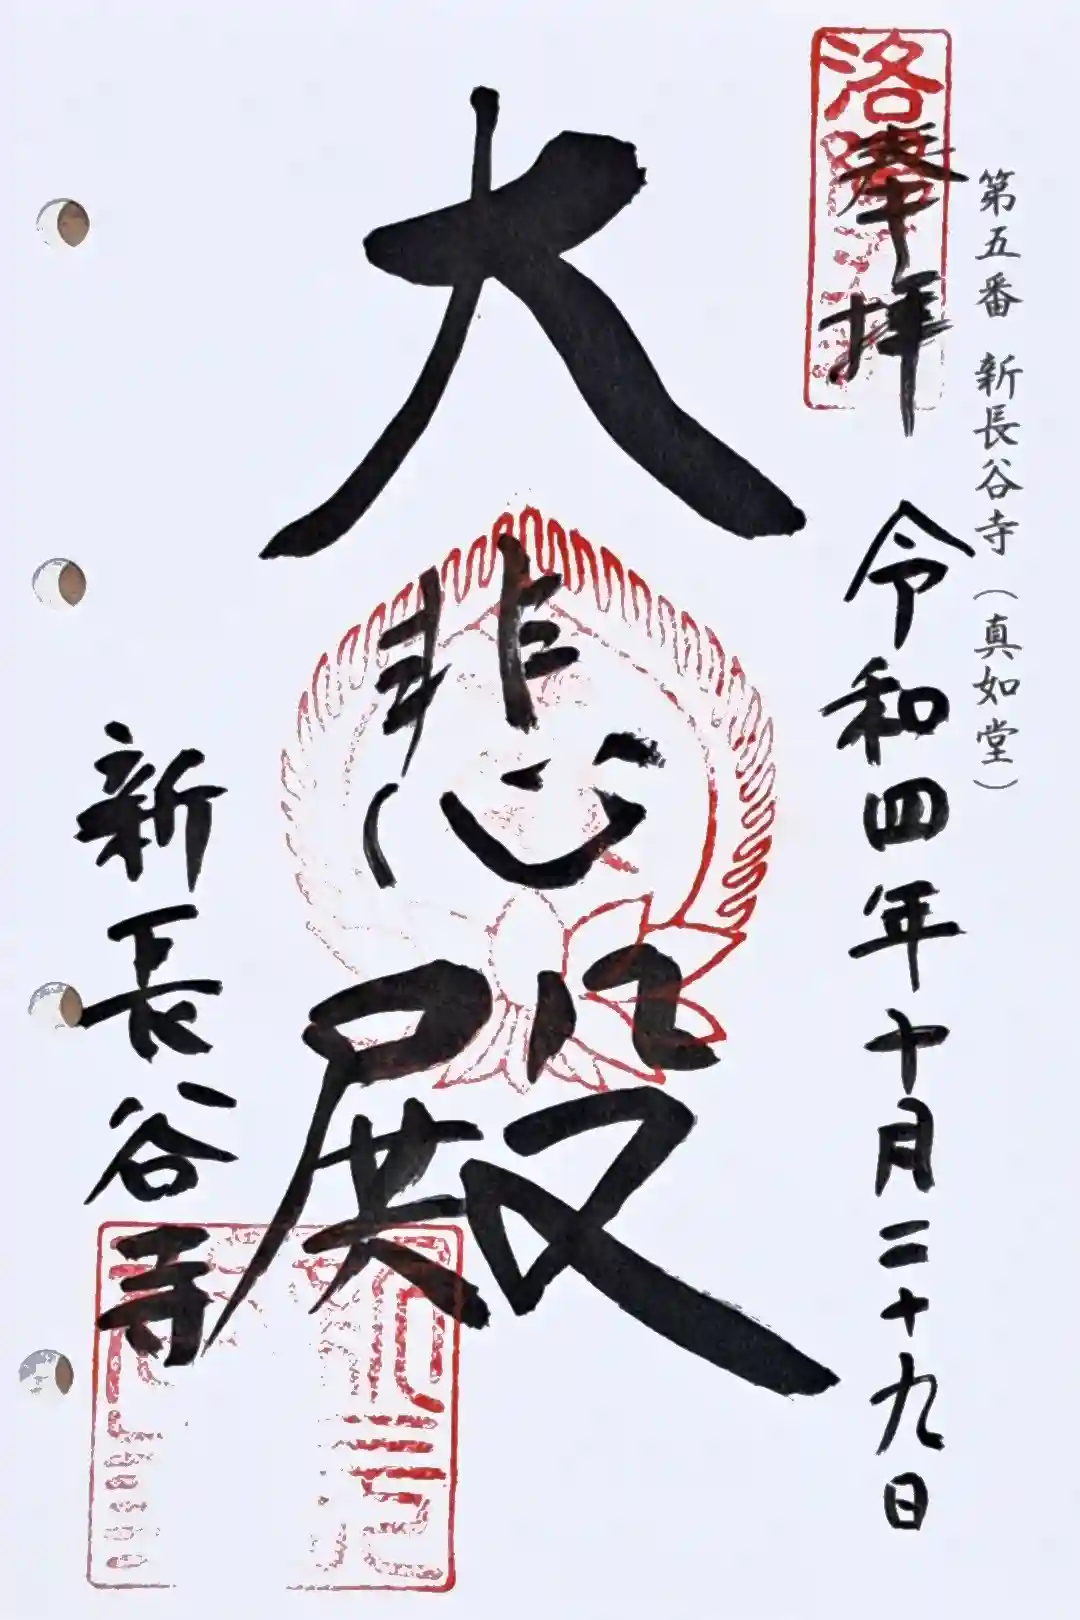 第五番 新長谷寺(真如堂)
奉拝 令和四年十月二十九日
大悲殿
新長谷寺